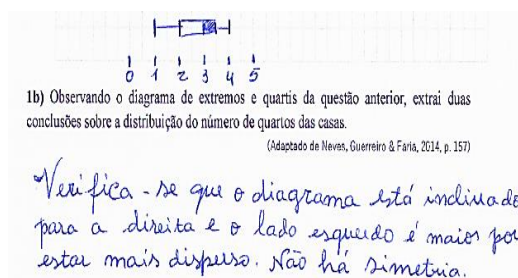 0 1 2 3 4 5
1b) Observando o diagrama de extremos e quartis da questão anterior, extrai duas
conclusões sobre a distribuição do número de quartos das casas.
(Adaptado de Neves, Guerreiro & Faria, 2014, p. 157)
Verifica-se que o diagrama está inclinado
para a direita e o lado esquerdo é maior por
estar mais disperso. Não há simetria.